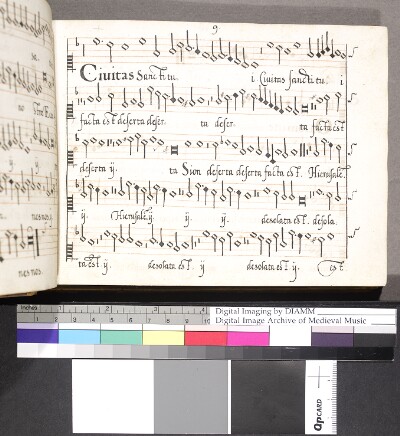 9
Civitas Sancti tu. i Civitas sancti tu. i
facta est deserta deser. ta deser. ta facta est
deserta ij. ta Sion deserta deserta facta est. Hierusale.
ij. Hierusale ij. ij. ij. desolata est. desola.
ta est. ij. desolata est. ij desolata est. ij. est.
inches 1 2
Digital Imaging by DIAMM
Digital Image Archive of Medieval Music
cm 1 2 3 4 5 6 7 8 9 10
QPCARD